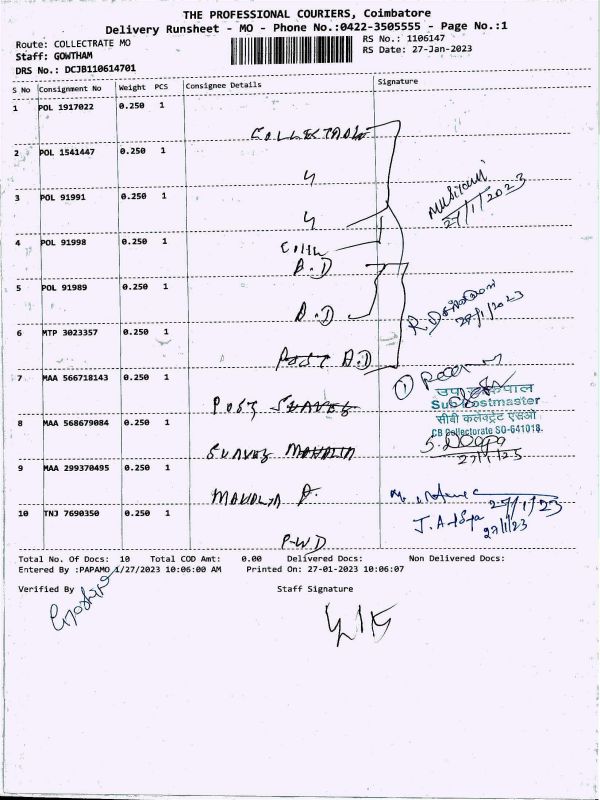 THE PROFESSIONAL COURIERS, Coimbatore
Delivery Runsheet - MO - Phone No.:0422-3505555 - Page No.:1
Route: COLLECTRATE MO
RS No.: 1106147
Staff: GOWTHAM
RS Date: 27-Jan-2023
DRS No.: DCJB110614701
S No Consignment No Weight PCS Consignee Details Signature
1 POL 1917022 0.250 1
COLLECTRATE
2 POL 1541447 0.250 1
3 POL 91991 0.250 1
27/1/2023
4 POL 91998 0.250 1
A.D
5 POL 91989 0.250 1
A.D
27/1/2023
6 MTP 3023357 0.250 1
A.D
7 MAA 566718143 0.250 1
POST
उप डाकपाल
Sub Postmaster
सीबी कलेक्ट्रेट एसओ
CB Collectorate SO-641018.
8 MAA 568679084 0.250 1
9 MAA 299370495 0.250 1
27/1/23
10 TNJ 7690350 0.250 1
27/1/23
P.W.D
Total No. Of Docs: 10 Total COD Amt: 0.00 Delivered Docs: Non Delivered Docs:
Entered By :PAPAMO 1/27/2023 10:06:00 AM Printed On: 27-01-2023 10:06:07
Verified By Staff Signature